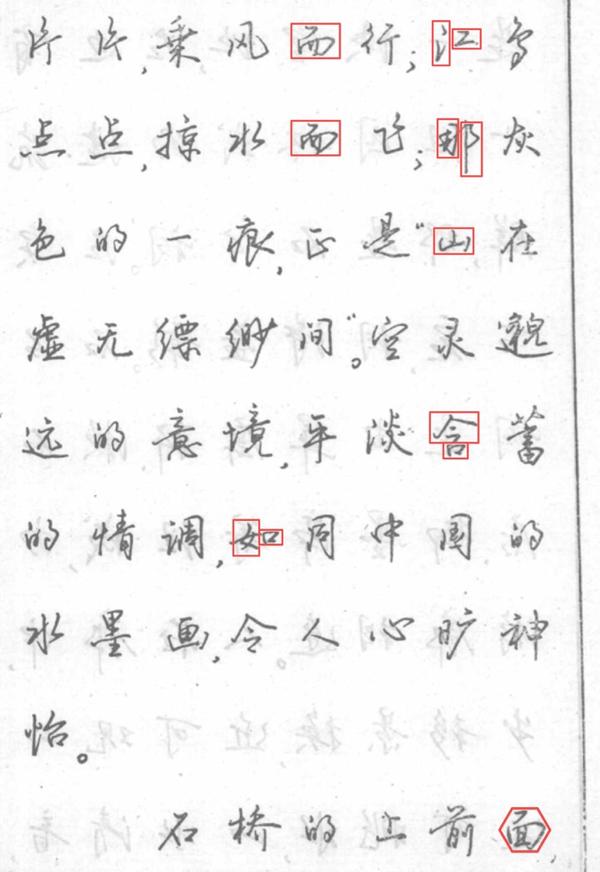 片片,乘风而行;江鸟
点点,掠水而飞;那灰
色的一痕,正是"山在
虚无缥缈间"。空灵邈
远的意境,平淡含蓄
的情调,如同中国的
水墨画,令人心旷神
怡。
石桥的上前面,